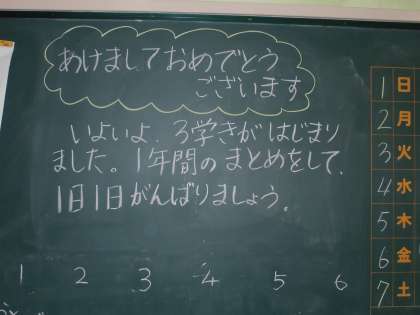 あけましておめでとう
ございます
いよいよ、3学きがはじまり
ました。1年間のまとめをして、
1日1日がんばりましょう。
1 2 3 4 5 6
1 日
2 月
3 火
4 水
5 木
6 金
7 土